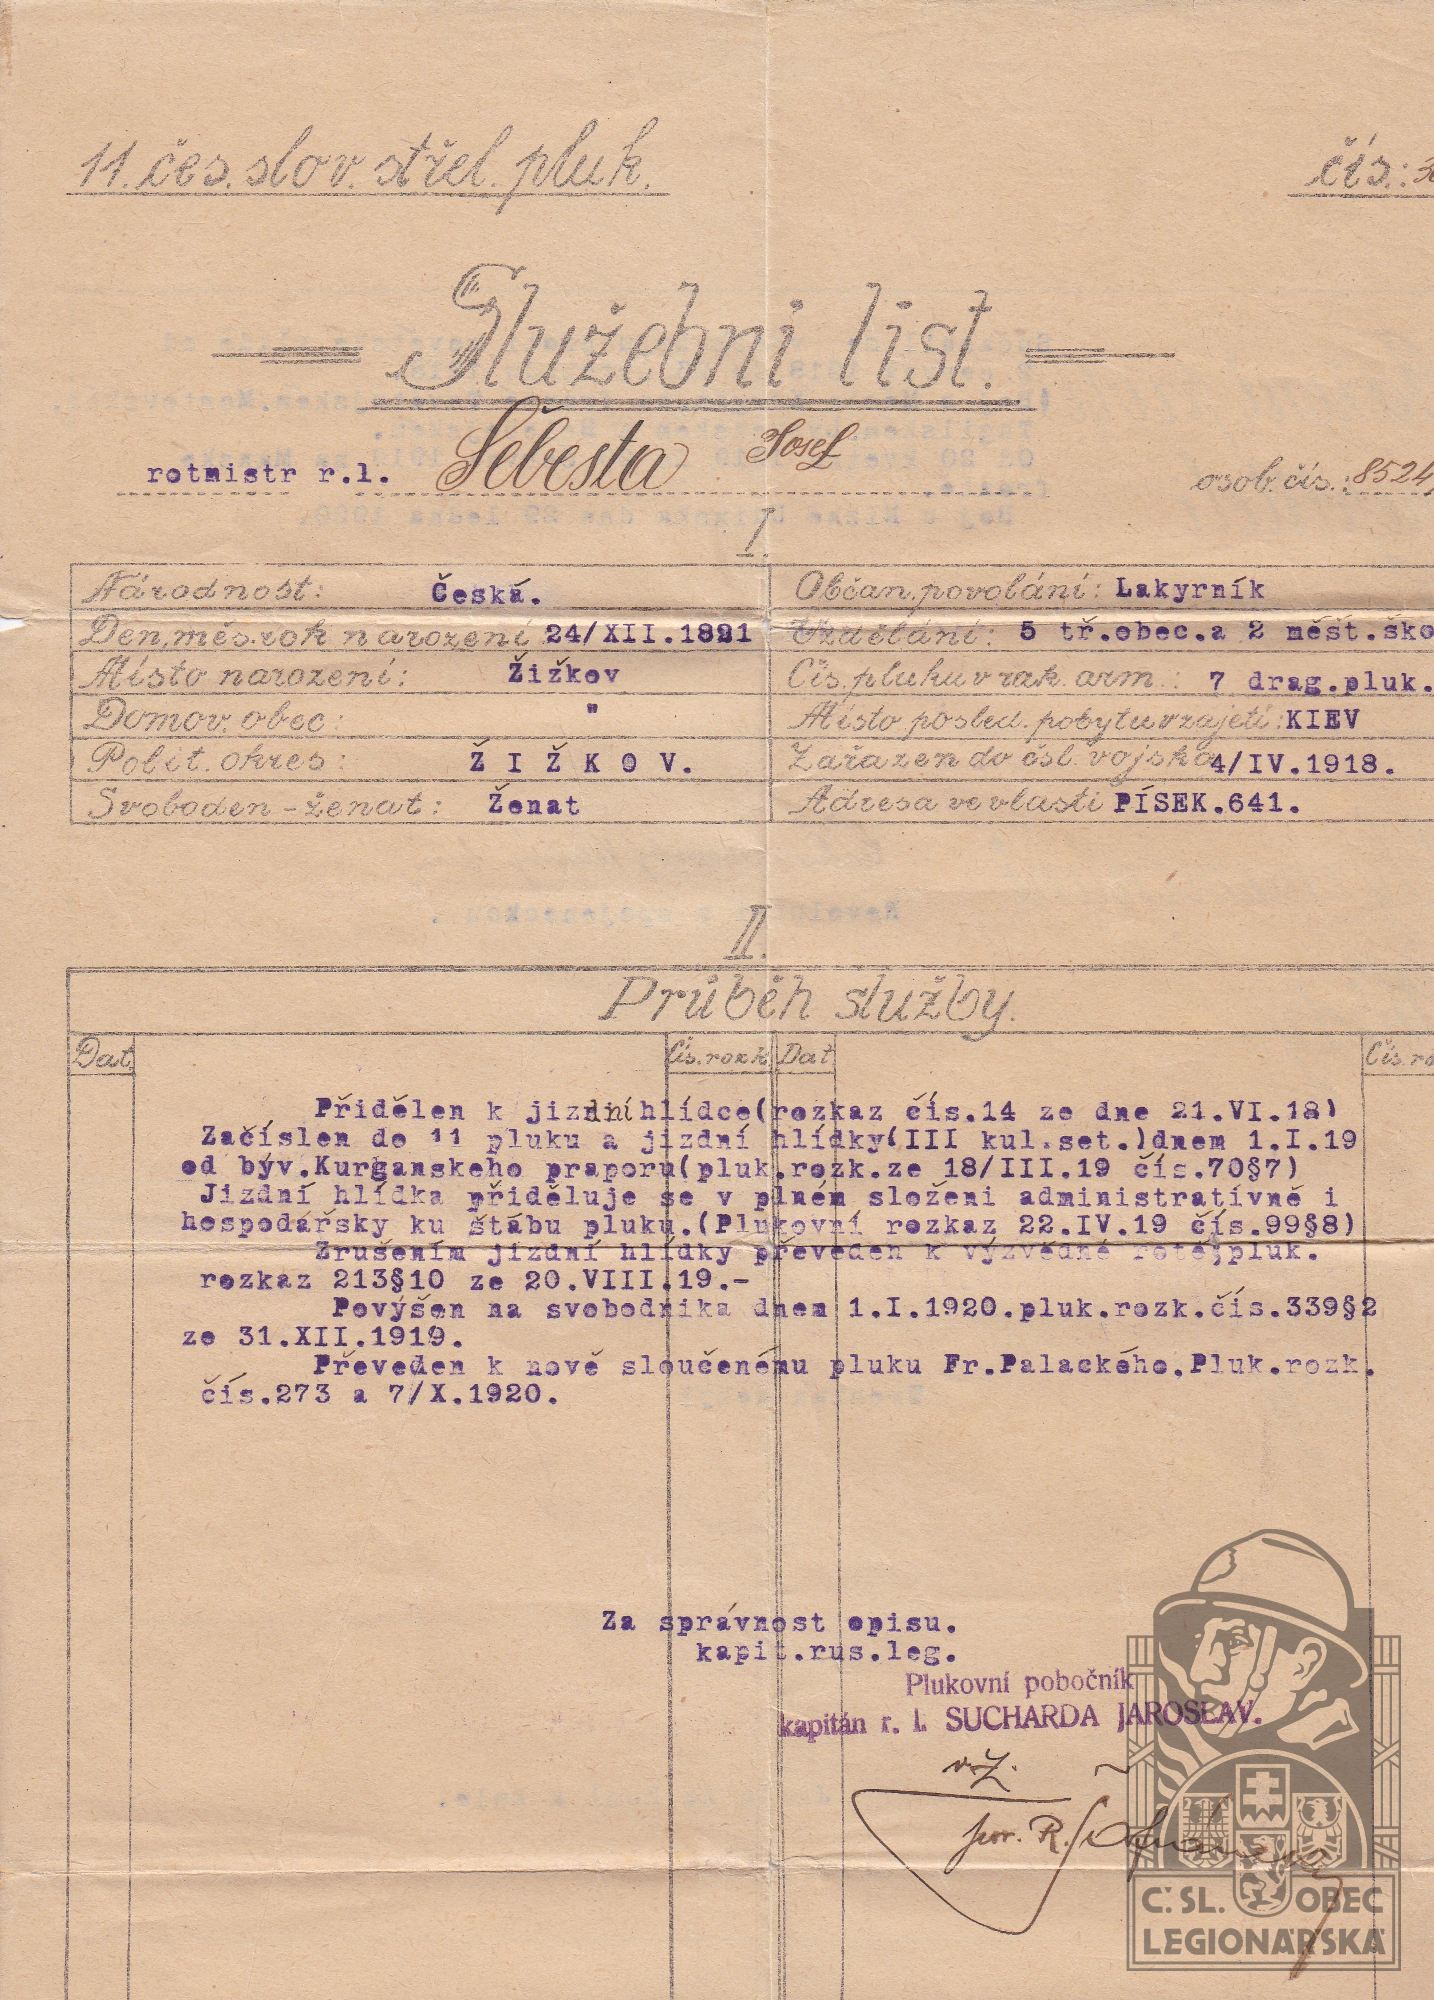 11. čes. slov. střel. pluk.
čís.:
Služebni list.
rotmistr r.l. Šebesta Josef
osob. čís.: 8524
I.
Národnost: Česká.
Občan. povolání: Lakyrník
Den, měs. rok narození 24/XII.1891
Vzdělání: 5 tř.obec.a 2 měšt.ško
Místo narození: Žižkov
Čís. pluku v rak. arm.: 7 drag.pluk.
Domov. obec: "
Místo posled. pobytu v zajetí: KIEV
Polit. okres: ŽIŽKOV.
Zařazen do čsl. vojska 4/IV.1918.
Svoboden - ženat: Ženat
Adresa ve vlasti PÍSEK.641.
II.
Průběh služby.
Dat. Čís. rozk Dat Čís. ro
Přidělen k jizdní hlídce(rozkaz čís.14 ze dne 21.VI.18)
Začíslen do 11 pluku a jízdní hlídky(III kul.set.)dnem 1.I.19
od býv.Kurganskeho praporu(pluk.rozk.ze 18/III.19 čís.70§7)
Jizdní hlídka přiděluje se v plném složeni administrativně i
hospodářsky ku štábu pluku.(Plukovní rozkaz 22.IV.19 čís.99§8)
Zrušením jízdní hlídky převeden k výzvědné rotě;pluk.
rozkaz 213§10 ze 20.VIII.19.-
Povýšen na svobodnika dnem 1.I.1920.pluk.rozk.čís.339§2
ze 31.XII.1919.
Převeden k nově sloučenému pluku Fr.Palackého.Pluk.rozk.
čís.273 a 7/X.1920.
Za správnost opisu.
kapit.rus.leg.
Plukovní pobočník
kapitán r. l. SUCHARDA JAROSLAV.
v.z.
por. R.
Č. SL. OBEC
LEGIONÁŘSKÁ